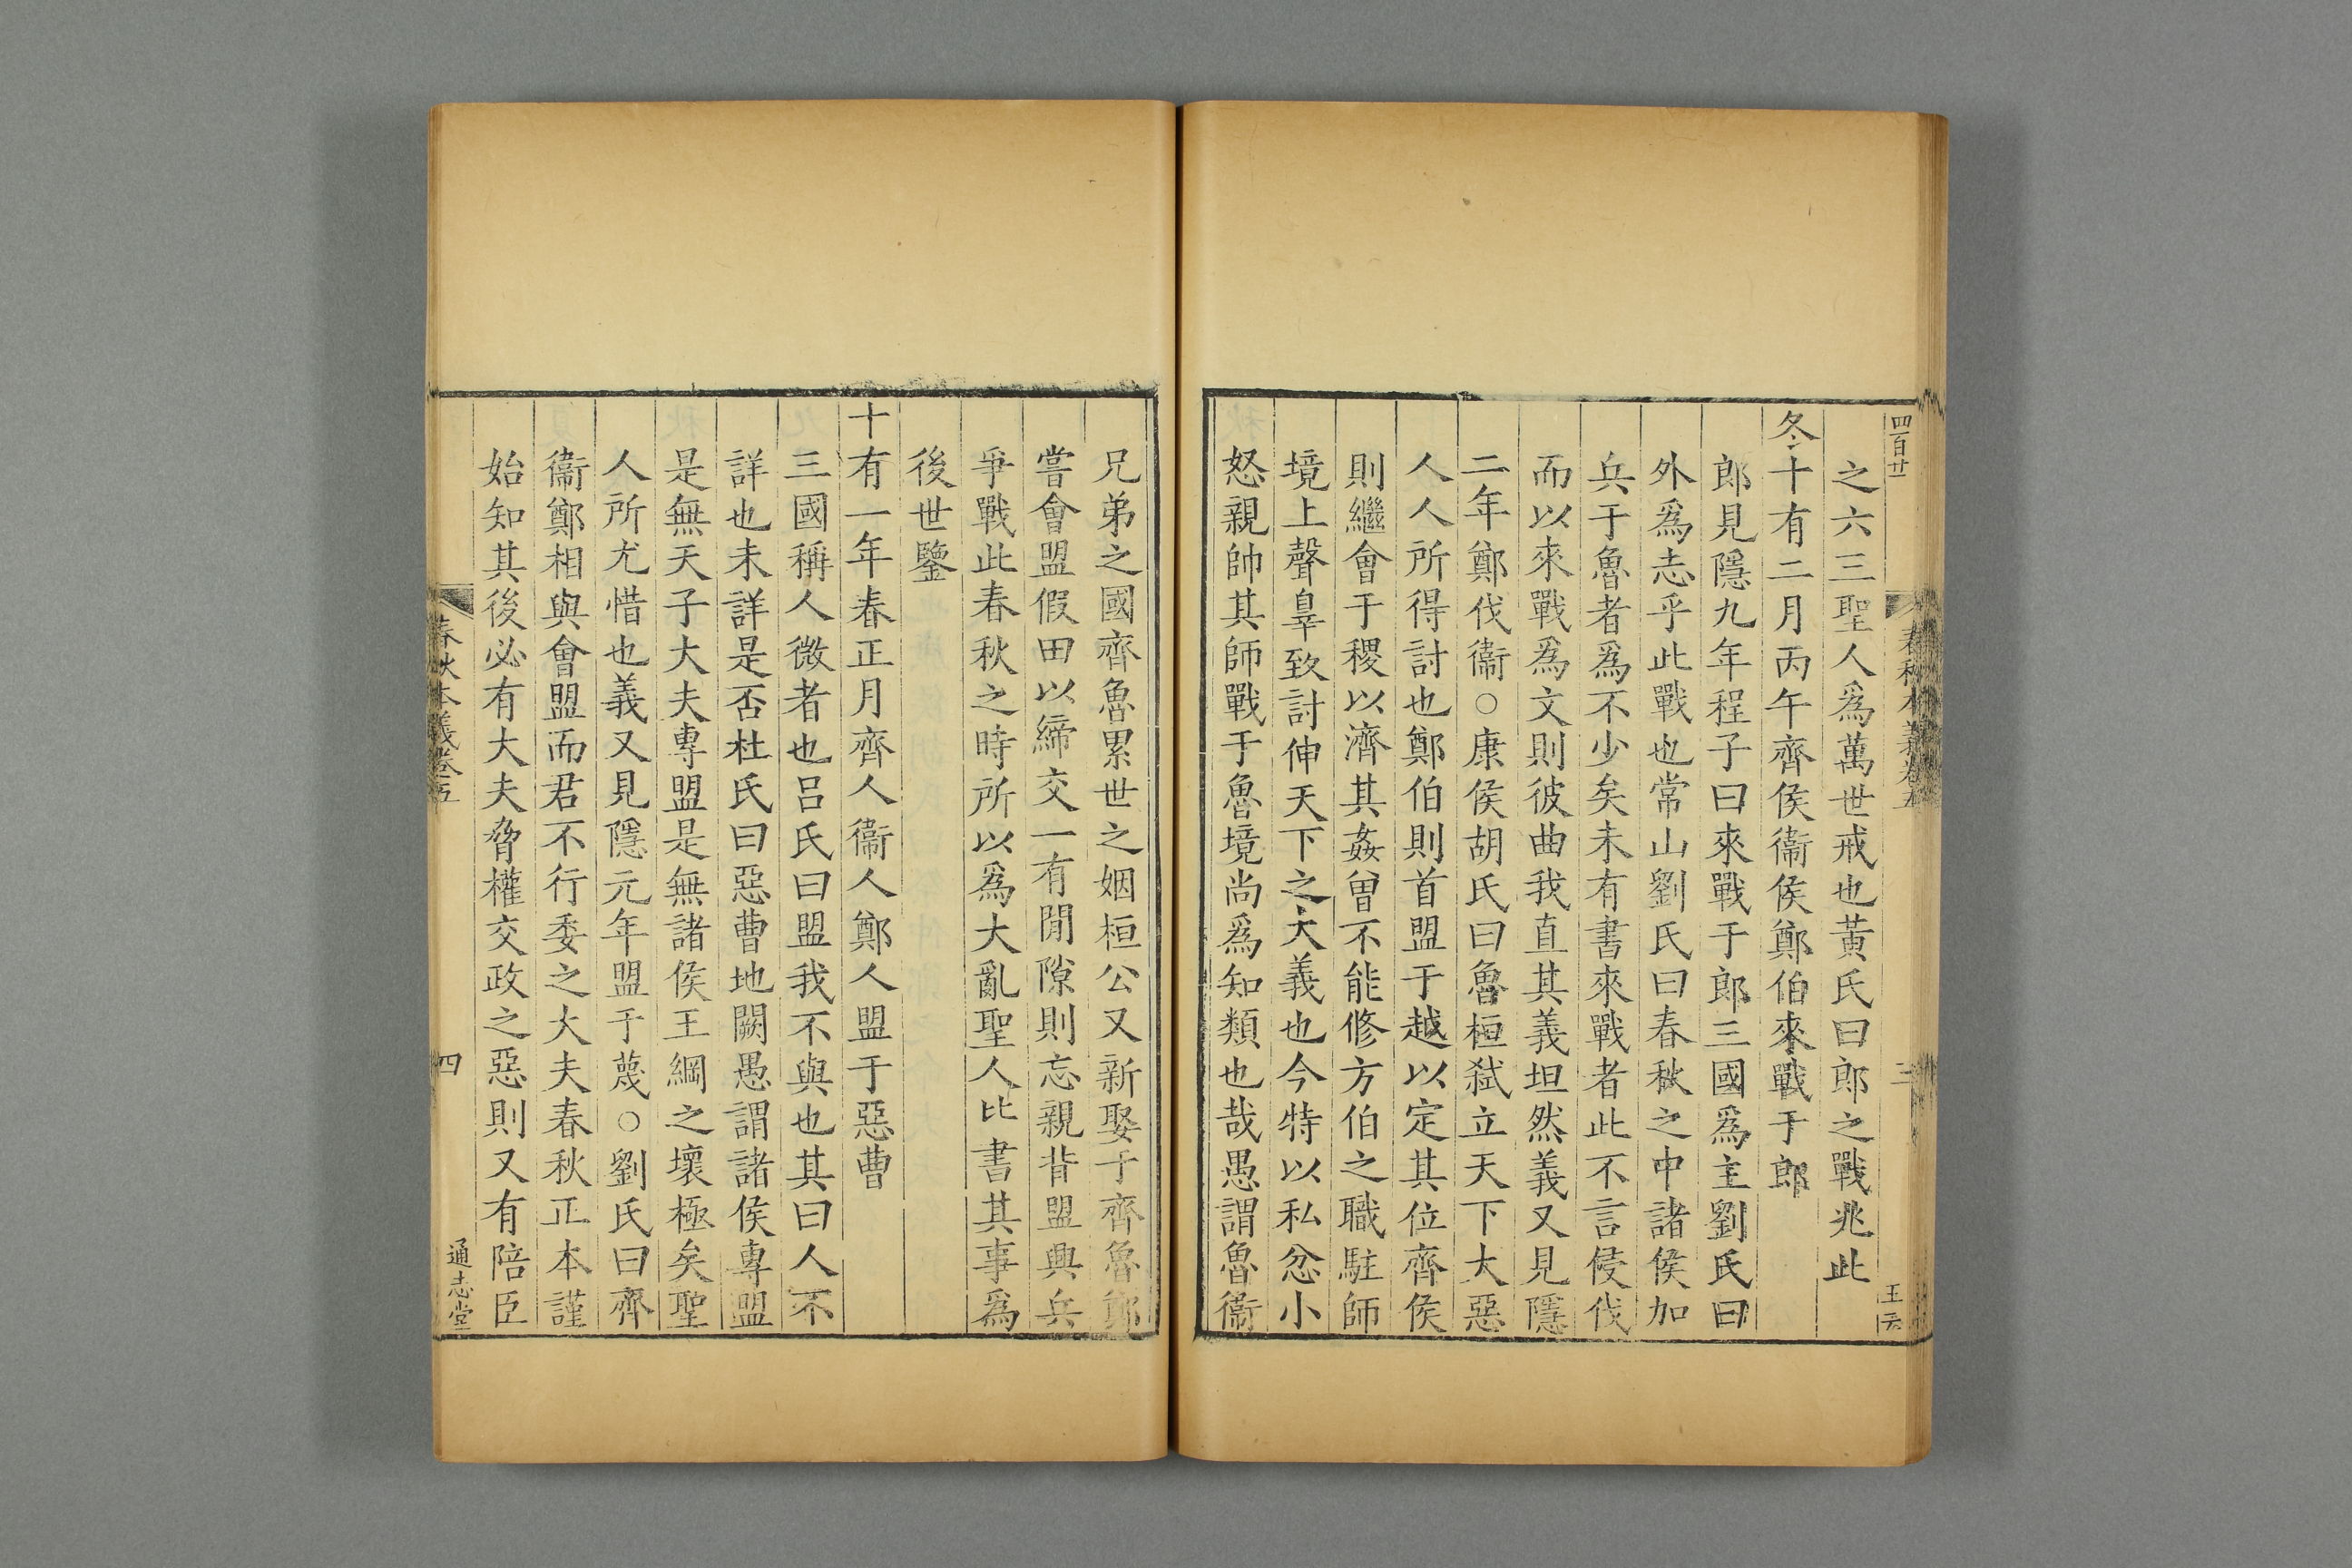 四百廿一
春秋本義卷五
三
王云
之六三聖人爲萬世戒也黃氏曰郎之戰兆此
冬十有二月丙午齊侯衞侯鄭伯來戰于郎
郎見隱九年程子曰來戰于郎三國爲主劉氏曰
外爲志乎此戰也常山劉氏曰春秋之中諸侯加
兵于魯者爲不少矣未有書來戰者此不言侵伐
而以來戰爲文則彼曲我直其義坦然義又見隱
二年鄭伐衞○康侯胡氏曰魯桓弑立天下大惡
人人所得討也鄭伯則首盟于越以定其位齊侯
則繼會于稷以濟其姦曾不能修方伯之職駐師
境上聲辠致討伸天下之大義也今特以私忿小
怒親帥其師戰于魯境尚爲知類也哉愚謂魯衞
兄弟之國齊魯累世之姻桓公又新娶于齊魯鄭
嘗會盟假田以締交一有閒隙則忘親背盟興兵
爭戰此春秋之時所以爲大亂聖人比書其事爲
後世鑒
十有一年春正月齊人衞人鄭人盟于惡曹
三國稱人微者也呂氏曰盟我不與也其曰人不
詳也未詳是否杜氏曰惡曹地闕愚謂諸侯專盟
是無天子大夫專盟是無諸侯王綱之壞極矣聖
人所尤惜也義又見隱元年盟于蔑○劉氏曰齊
衞鄭相與會盟而君不行委之大夫春秋正本謹
始知其後必有大夫脅權交政之惡則又有陪臣
春秋本義卷五
四
通志堂